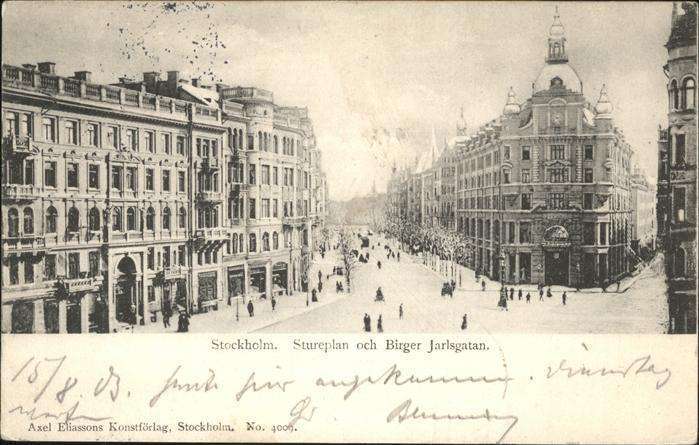 Stockholm. Stureplan och Birger Jarlsgatan.
15/8 03. heute hier angekommen. Dienstag
Axel Eliassons Konstförlag, Stockholm. No. 4009.